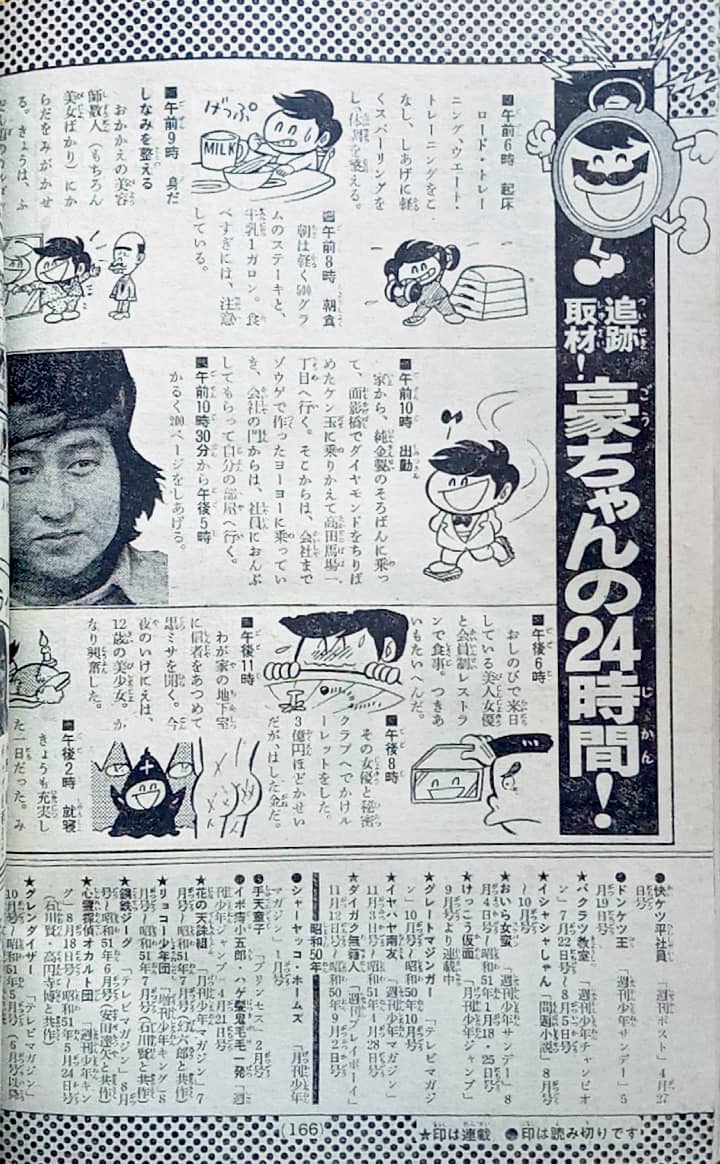 追跡
取材！
豪ちゃんの24時間！
■午前6時　起床
ロード・トレー
ニング、ウエート・
トレーニングをこ
なし、しあげに軽
くスパーリングを
し、体調を整える。
げっぷ
MILK
■午前8時　朝食
朝は軽く500グラ
ムのステーキと、
牛乳1ガロン。食
べすぎには、注意
している。
■午前9時　身だ
しなみを整える
おかかえの美容
師数人（もちろん
美女ばかり）にか
らだをみがかせ
る。きょうは、ふ
■午前10時　出勤
家から、純金製のそろばんに乗っ
て、面影橋でダイヤモンドをちりば
めたケン玉に乗りかえて高田馬場一
丁目へ行く。そこからは、会社まで
ゾウゲで作ったヨーヨーに乗ってい
き、会社の門からは、社員におんぶ
してもらって自分の部屋へ行く。
■午前10時30分から午後5時
かるく200ページをしあげる。
■午後6時
おしのびで来日
している美人女優
と会員制レストラ
ンで食事。つきあ
いもたいへんだ。
■午後8時
その女優と秘密
クラブへでかけル
ーレットをした。
3億円ほどかせい
だが、はした金だ。
■午後11時
わが家の地下室
に信者をあつめて
黒ミサを開く。今
夜のいけにえは、
12歳の美少女。か
なり興奮した。
■午後2時　就寝
きょうも充実し
た一日だった。み
●快ケツ平社員　「週刊ポスト」4月27
日号
●ドンケツ王　「週刊少年サンデー」5
月19日号
★バクラツ教室　「週刊少年チャンピオ
ン」7月22日号～8月5日号
★イシャシャしゃん　「問題小説」8月号
～10月号
★おいら女蛮　「週刊少年サンデー」8
月4日号～昭和51年1月18・25日号
★けっこう仮面　「月刊少年ジャンプ」
9月号より連載中
★グレートマジンガー　「テレビマガジ
ン」10月号～昭和50年9月号
★イヤハヤ南友　「週刊少年マガジン」
11月3日号～昭和51年4月28日号
★ダイガク無頼人　「週刊プレイボーイ」
11月12日号～昭和50年9月2日号
昭和50年
●シャーヤッコ・ホームズ　「月刊少年
マガジン」1月号
●手天童子　「プリンセス」2月号
●イボ痔小五郎・ハゲ柴鬼毛毛一発　「週
刊少年ジャンプ」4月21日号
★花の天誅組　「月刊少年マガジン」7
月号～昭和51年7月号
★リョコー少年団　「増刊少年キング」8
月号～昭和51年7月号（石川賢と共作）
★鋼鉄ジーグ　「テレビマガジン」8月
号～昭和51年6月号（安田達矢と共作）
★心霊探偵オカルト団　「週刊少年キン
グ」8月18日号～昭和51年5月24日号
（石川賢・高円寺博と共作）
★グレンダイザー　「テレビマガジン」
10月号～昭和51年5月号
(166)
★印は連載　●印は読み切りです